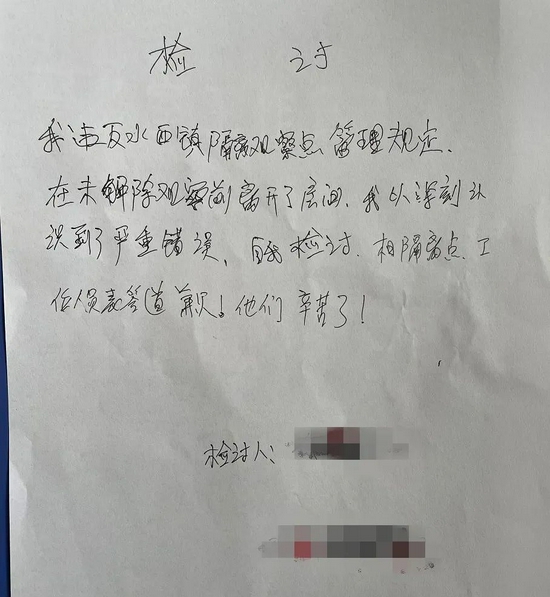 检 讨
我违反水西镇隔离观察点管理规定.
在未解除观察前离开了房间.我以深刻认
识到了严重错误,自我检讨.相隔离点工
作人员表答道歉!他们辛苦了!
检讨人: